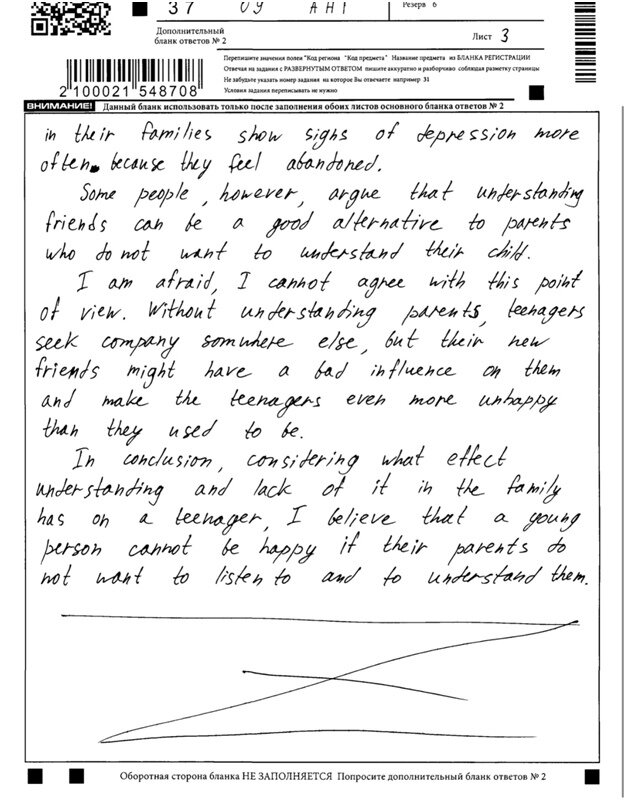 37 ОУ АНГ Резерв 6
Дополнительный
бланк ответов № 2
Лист 3
Перепишите значения полей "Код региона "Код предмета" Название предмета из БЛАНКА РЕГИСТРАЦИИ
Отвечая на задания с РАЗВЕРНУТЫМ ОТВЕТОМ пишите аккуратно и разборчиво соблюдая разметку страницы
Не забудьте указать номер задания на которое Вы отвечаете например 31
Условия задания переписывать не нужно
2100021548708
ВНИМАНИЕ! Данный бланк использовать только после заполнения обоих листов основного бланка ответов № 2
in their families show sighs of depression more
often because they feel abandoned.
Some people, however, argue that understanding
friends can be a good alternative to parents
who do not want to understand their child.
I am afraid, I cannot agree with this point
of view. Without understanding parents, teenagers
seek company somwhere else, but their new
friends might have a bad influence on them
and make the teenagers even more unhappy
than they used to be.
In conclusion, considering what effect
understanding and lack of it in the family
has on a teenager, I believe that a young
person cannot be happy if their parents do
not want to listen to and to understand them.
Оборотная сторона бланка НЕ ЗАПОЛНЯЕТСЯ Попросите дополнительный бланк ответов № 2